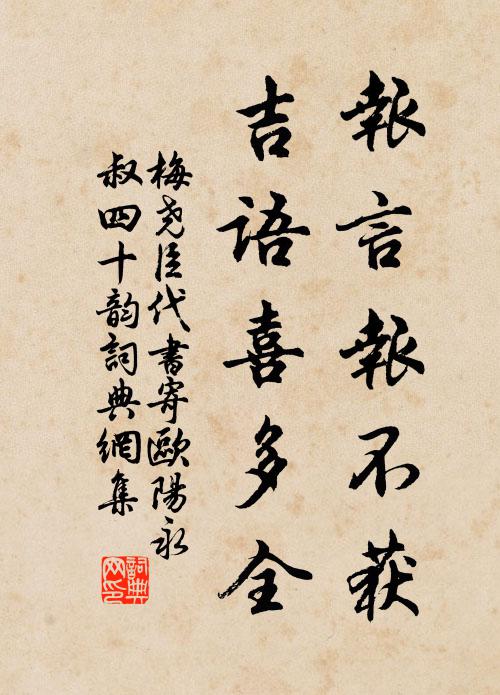 報言報不获
吉語喜多全
梅堯臣代書寄歐陽永
叔四十韵詞典網集
詞典网印